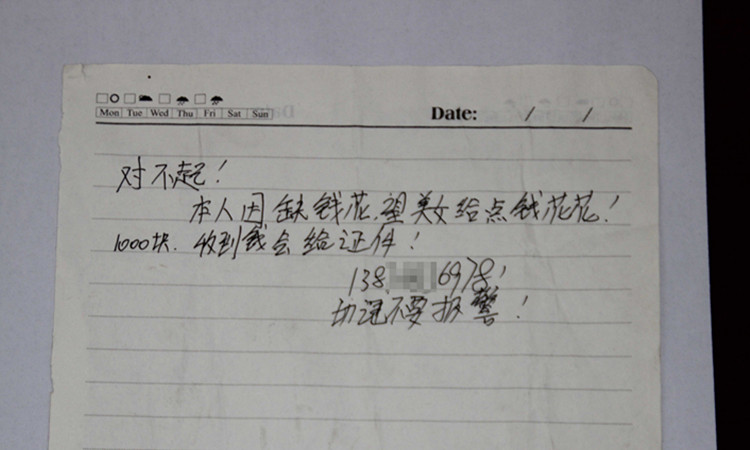 Mon Tue Wed Thu Fri Sat Sun Date: / /
对不起!
本人因缺钱花,望美女给点钱花花!
1000块.收到钱会给证件!
138 6978!
切记不要报警!